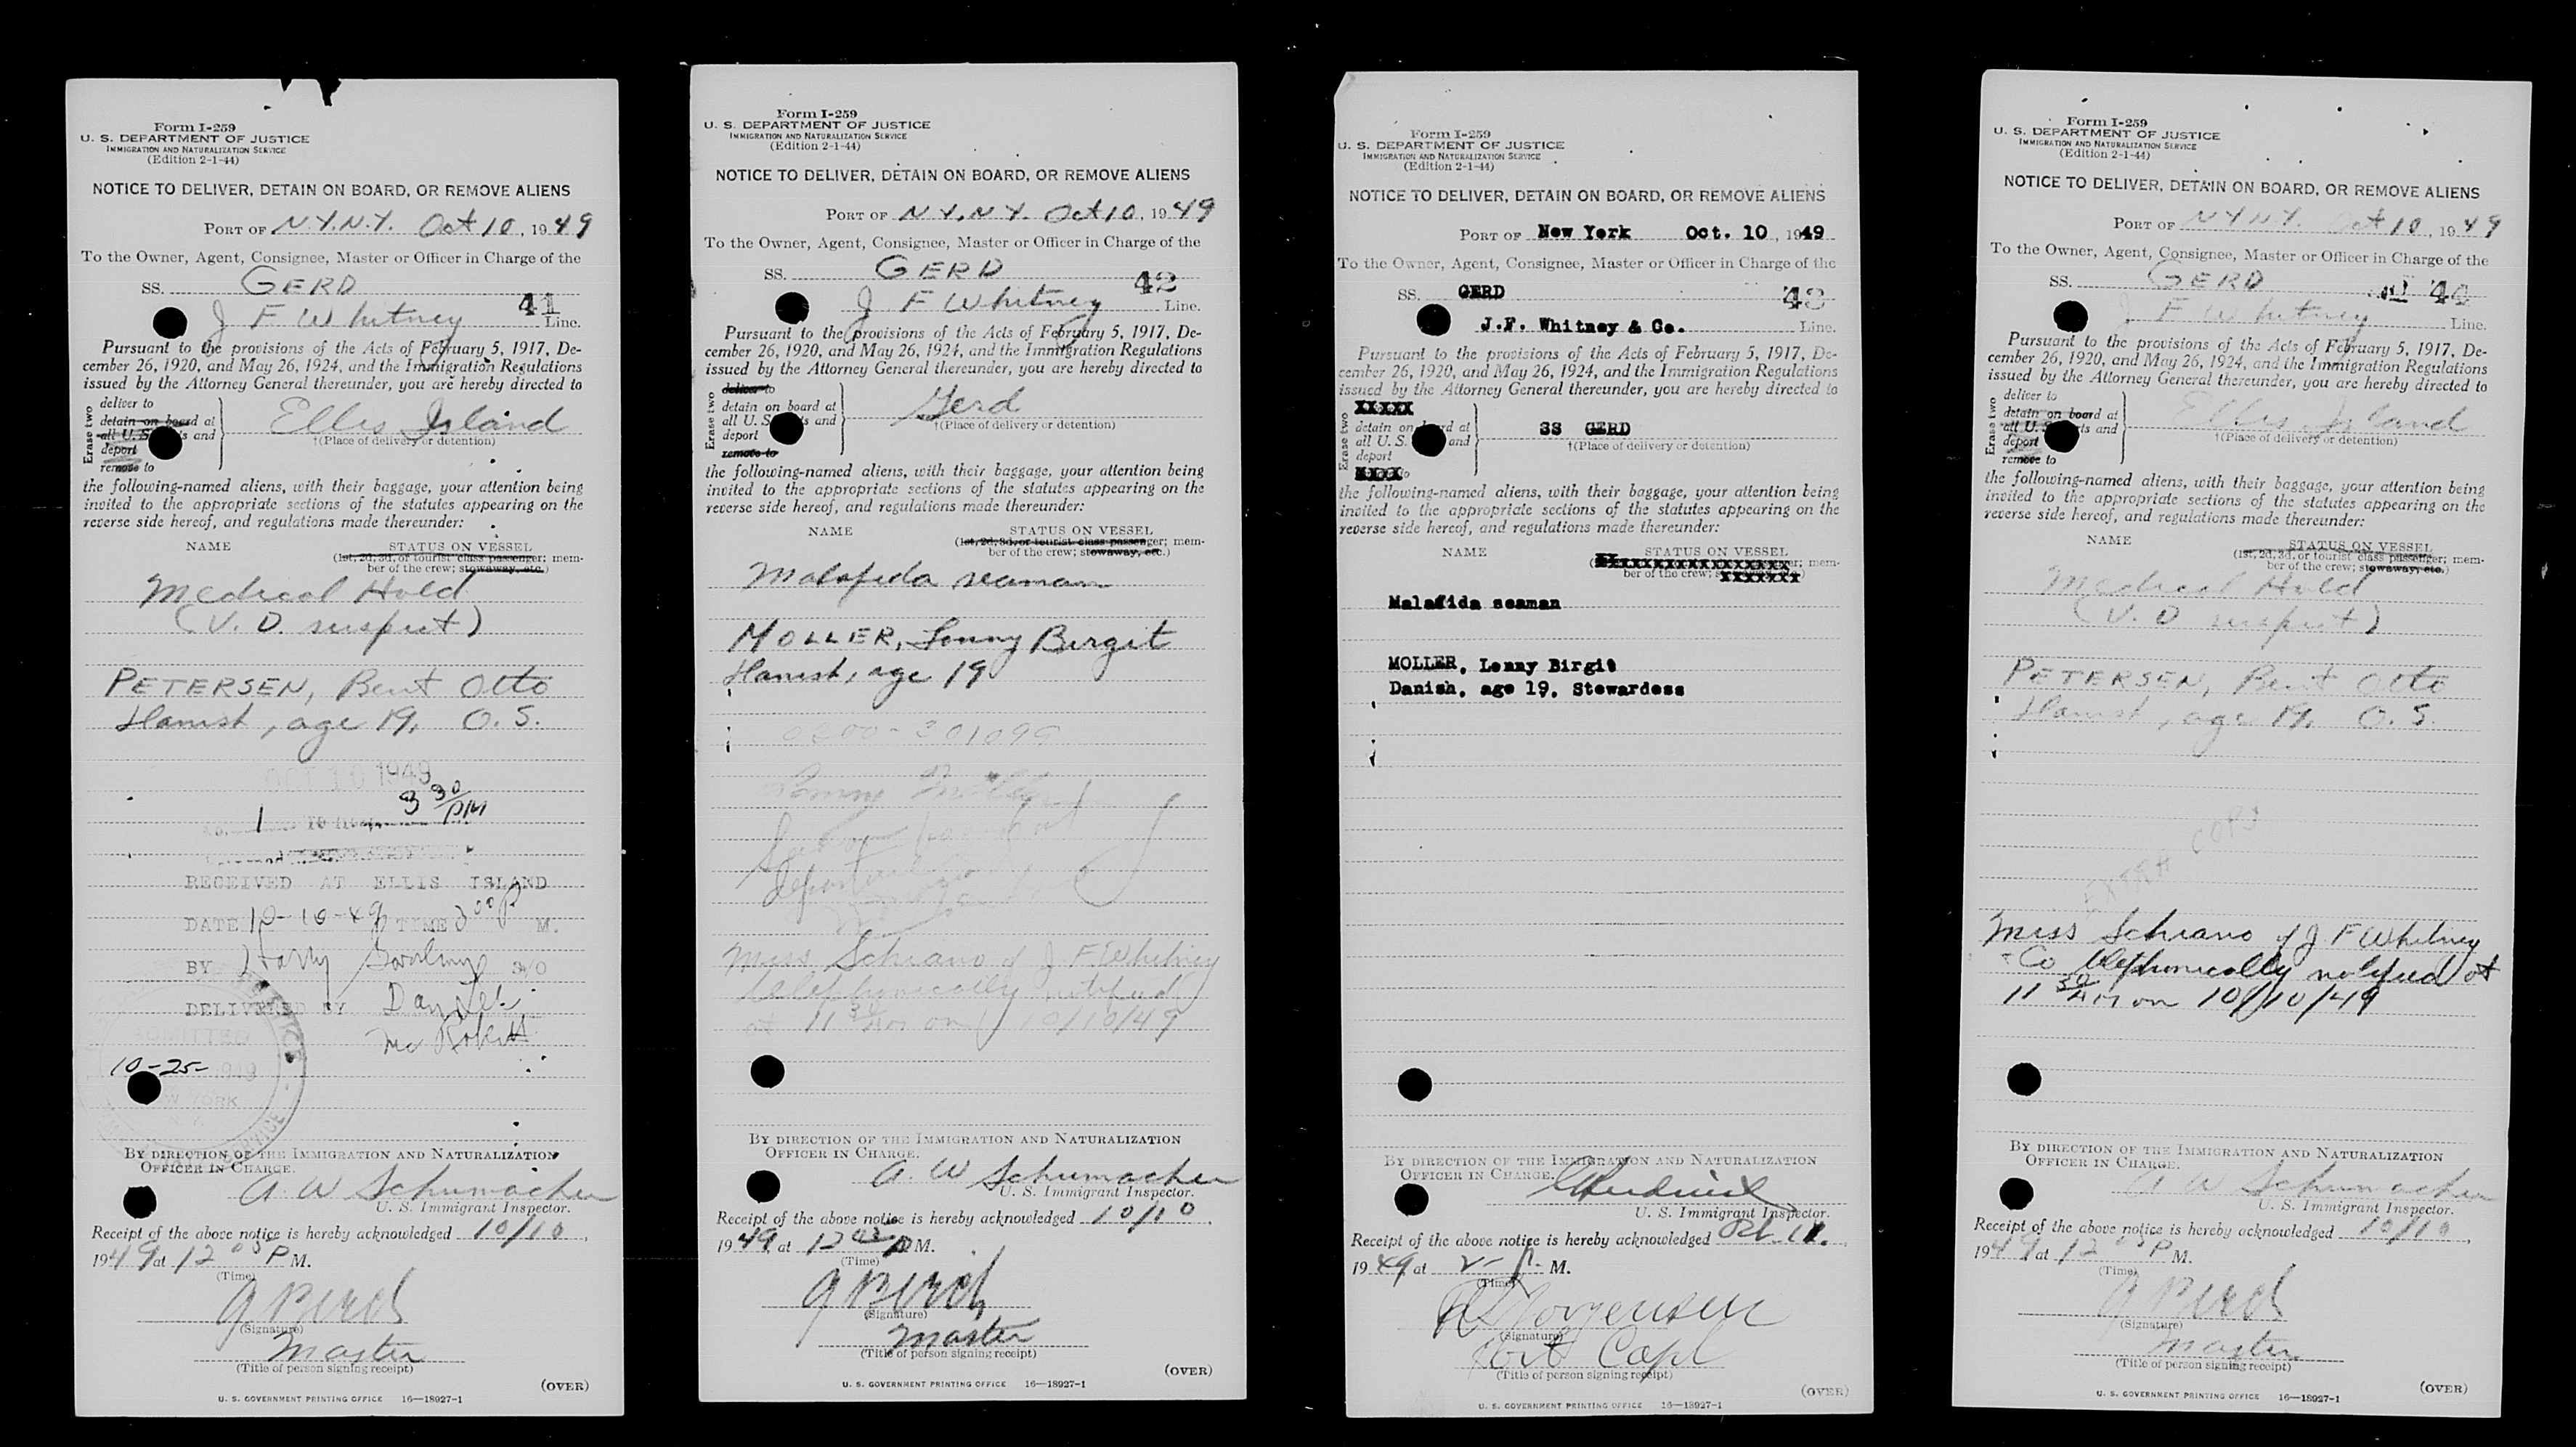 Form I-259
U. S. DEPARTMENT OF JUSTICE
IMMIGRATION AND NATURALIZATION SERVICE
(Edition 2-1-44)
NOTICE TO DELIVER, DETAIN ON BOARD, OR REMOVE ALIENS
PORT OF N.Y.N.Y. Oct 10, 1949
To the Owner, Agent, Consignee, Master or Officer in Charge of the
SS. GERD
41
J F Whitney Line.
Pursuant to the provisions of the Acts of February 5, 1917, De-
cember 26, 1920, and May 26, 1924, and the Immigration Regulations
issued by the Attorney General thereunder, you are hereby directed to
Erase two
deliver to
detain on board at
all U. S. and
deport
remove to
Ellis Island
†(Place of delivery or detention)
the following-named aliens, with their baggage, your attention being
invited to the appropriate sections of the statutes appearing on the
reverse side hereof, and regulations made thereunder:
NAME STATUS ON VESSEL
(1st, 2d, 3d, or tourist class passenger; mem-
ber of the crew; stowaway, etc.)
Medical Hold
(V. D. suspect)
PETERSEN, Bent Otto
Danish, age 19, O. S.
OCT 10 1949
1 3 30 PM
RECEIVED AT ELLIS ISLAND
DATE 10-10-49 TIME 3 00 P M.
BY Harry
DELIVERED BY
ADMITTED
10-25- 1949
NEW YORK
N. Y.
BY DIRECTION OF THE IMMIGRATION AND NATURALIZATION
OFFICER IN CHARGE.
A. W Schumacher
U. S. Immigrant Inspector.
Receipt of the above notice is hereby acknowledged 10/10,
1949 at 12 05 P M.
(Time)
(Signature)
Master
(Title of person signing receipt)
(OVER)
U. S. GOVERNMENT PRINTING OFFICE 16—18927-1
Form I-259
U. S. DEPARTMENT OF JUSTICE
IMMIGRATION AND NATURALIZATION SERVICE
(Edition 2-1-44)
NOTICE TO DELIVER, DETAIN ON BOARD, OR REMOVE ALIENS
PORT OF N.Y.N.Y. Oct 10, 1949
To the Owner, Agent, Consignee, Master or Officer in Charge of the
SS. GERD
42
J F Whitney Line.
Pursuant to the provisions of the Acts of February 5, 1917, De-
cember 26, 1920, and May 26, 1924, and the Immigration Regulations
issued by the Attorney General thereunder, you are hereby directed to
Erase two
deliver to
detain on board at
all U. S. and
deport
remove to
Gerd
†(Place of delivery or detention)
the following-named aliens, with their baggage, your attention being
invited to the appropriate sections of the statutes appearing on the
reverse side hereof, and regulations made thereunder:
NAME STATUS ON VESSEL
(1st, 2d, 3d, or tourist class passenger; mem-
ber of the crew; stowaway, etc.)
Malafida seaman
MOLLER, Birgit
Danish, age 19
Miss Schiano of J F Whitney
telephonically notified
at 11 30 AM on 10/10/49
BY DIRECTION OF THE IMMIGRATION AND NATURALIZATION
OFFICER IN CHARGE.
A. W Schumacher
U. S. Immigrant Inspector.
Receipt of the above notice is hereby acknowledged 10/10,
1949 at 12 05 P M.
(Time)
(Signature)
Master
(Title of person signing receipt)
(OVER)
U. S. GOVERNMENT PRINTING OFFICE 16—18927-1
Form I-259
U. S. DEPARTMENT OF JUSTICE
IMMIGRATION AND NATURALIZATION SERVICE
(Edition 2-1-44)
NOTICE TO DELIVER, DETAIN ON BOARD, OR REMOVE ALIENS
PORT OF New York Oct. 10, 1949
To the Owner, Agent, Consignee, Master or Officer in Charge of the
SS. GERD
43
J.F. Whitney & Co. Line.
Pursuant to the provisions of the Acts of February 5, 1917, De-
cember 26, 1920, and May 26, 1924, and the Immigration Regulations
issued by the Attorney General thereunder, you are hereby directed to
Erase two
XXXXX
detain on board at
all U. S. and
deport
XXXX
SS GERD
†(Place of delivery or detention)
the following-named aliens, with their baggage, your attention being
invited to the appropriate sections of the statutes appearing on the
reverse side hereof, and regulations made thereunder:
NAME STATUS ON VESSEL
mem-
ber of the crew;
Malafida seaman
MOLLER, Lonny Birgit
Danish, age 19, Stewardess
BY DIRECTION OF THE IMMIGRATION AND NATURALIZATION
OFFICER IN CHARGE.
U. S. Immigrant Inspector.
Receipt of the above notice is hereby acknowledged
1949 at 2 - p. M.
(Time)
(Signature)
Port Capt
(Title of person signing receipt)
(OVER)
U. S. GOVERNMENT PRINTING OFFICE 16—18927-1
Form I-259
U. S. DEPARTMENT OF JUSTICE
IMMIGRATION AND NATURALIZATION SERVICE
(Edition 2-1-44)
NOTICE TO DELIVER, DETAIN ON BOARD, OR REMOVE ALIENS
PORT OF N.Y.N.Y. Oct 10, 1949
To the Owner, Agent, Consignee, Master or Officer in Charge of the
SS. GERD
44
J F Whitney Line.
Pursuant to the provisions of the Acts of February 5, 1917, De-
cember 26, 1920, and May 26, 1924, and the Immigration Regulations
issued by the Attorney General thereunder, you are hereby directed to
Erase two
deliver to
detain on board at
all U. S. and
deport
remove to
Ellis Island
†(Place of delivery or detention)
the following-named aliens, with their baggage, your attention being
invited to the appropriate sections of the statutes appearing on the
reverse side hereof, and regulations made thereunder:
NAME STATUS ON VESSEL
(1st, 2d, 3d, or tourist class passenger; mem-
ber of the crew; stowaway, etc.)
Medical Hold
(V. D suspect)
PETERSEN, Bent Otto
Danish, age 19, O. S.
EXTRA COPY
Miss Schiano of J F Whitney
+ Co telephonically notified at
11 30 AM on 10/10/49
BY DIRECTION OF THE IMMIGRATION AND NATURALIZATION
OFFICER IN CHARGE.
A W Schumacher
U. S. Immigrant Inspector.
Receipt of the above notice is hereby acknowledged 10/10,
1949 at 12 05 P M.
(Time)
(Signature)
Master
(Title of person signing receipt)
(OVER)
U. S. GOVERNMENT PRINTING OFFICE 16—18927-1